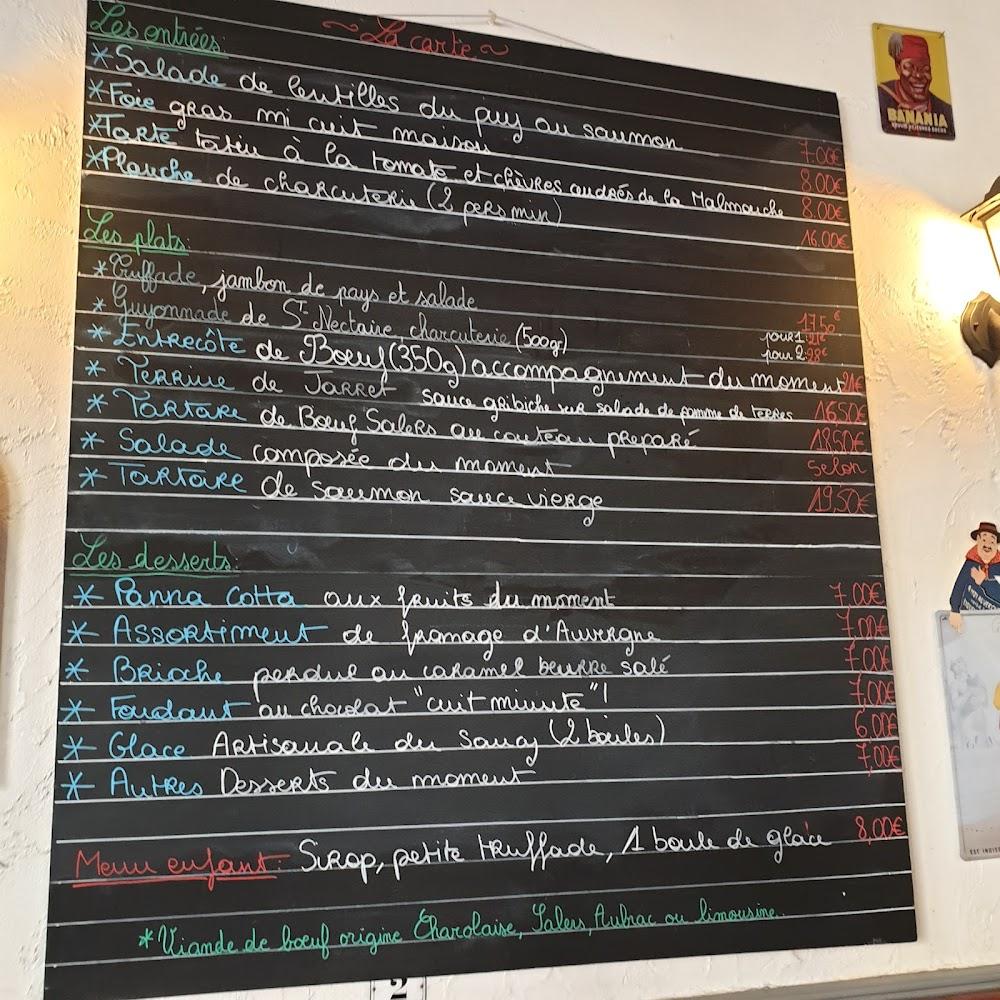 ~ La carte ~
Les entrées:
*Salade de lentilles du puy au saumon 7.00€
*Foie gras mi cuit maison 8.00€
*Tarte tatin à la tomate et chèvres cendrés de la Malmouche 8.00€
*Planche de charcuterie (2 pers min) 16.00€
Les plats:
*Truffade, jambon de pays et salade 17.50€
* Guyonnade de St-Nectaire, charcuterie (500gr) pour 1: 21€
pour 2: 28€
* Entrecôte de Boeuf (350g) accompagnement du moment 21€
* Terrine de Jarret sauce gribiche sur salade de pomme de terres 16,50€
* Tartare de Boeuf Salers au couteau preparé 18,50€
* Salade composée du moment selon
* Tartare de saumon sauce vierge 19,50€
Les desserts:
* Panna Cotta aux fruits du moment 7.00€
* Assortiment de fromage d'Auvergne 7,00€
* Brioche perdue au caramel beurre salé 7.00€
* Fondant au chocolat "cuit minute"! 7,00€
* Glace Artisanale du Sancy (2 boules) 6.00€
* Autres Desserts du moment 7,00€
Menu enfant: Sirop, petite truffade, 1 boule de glace 8,00€
*Viande de boeuf origine Charolaise, Salers, Aubrac ou limousine.
BANANIA